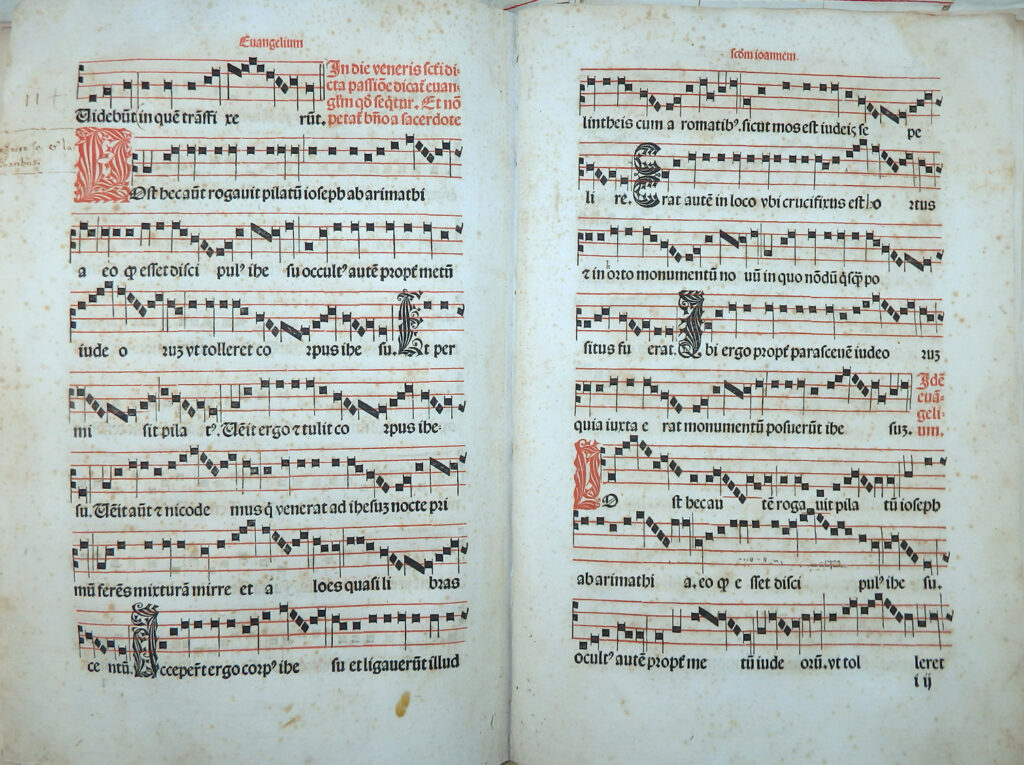 Euangelium
In die veneris scti di-
cta passiōe dicat̄ euan-
glm qd̄ seqtur. Et nō
petat̄ bn̄o a sacerdote
Uidebūt in quē trāsfi xe rūt.
Ost hec aūt rogauit pilatū ioseph ab arimathi
a eo ꝙ esset disci pulꝰ ihe su occultꝰ autē propt̄ metū
iude o ruꝫ vt tolleret co rpus ihe su. Et per
mi sit pila tꝰ. Uēit ergo ⁊ tulit co rpus ihe-
su. Uēit aūt ⁊ nicode mus q̇ venerat ad ihesuꝫ nocte pri
mū ferēs mixturā mirre et a loes quasi li bras
ce ntū. Acceper̄t ergo corpꝰ ihe su et ligauerūt illud
scd̄m ioannem.
lintheis cum a romatibꝰ. sicut mos est iudeis se pe
li re. Erat autē in loco vbi crucifixus est ho rtus
⁊ in orto monumentū no uū in quo nōdū q̇sꝙ̄ po
situs fu erat. Ubi ergo propt̄ parasceuē iudeo ruꝫ
quia iuxta e rat monumentū posuerūt ihe suꝫ.
Idē
euā-
geli-
um.
PO st hec au tē roga uit pila tū ioseph
ab arimathi a. eo ꝙ e sset disci pulꝰ ihe su.
ocultꝰ autē propt̄ me tū iude orū. vt tol leret
i ij